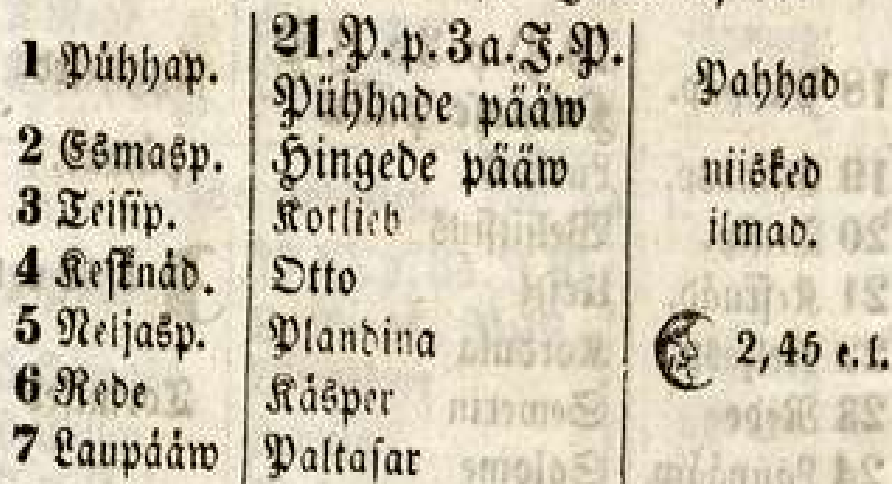 1 Pühhap. 21.P.p.3a.J.P. Pahhad
Pühhade pääw
2 Esmasp. Hingede pääw niisked
3 Teisip. Kotlieb ilmad.
4 Kesknäd. Otto
5 Neljasp. Plandina 2,45 e.l.
6 Rede Käsper
7 Laupääw Paltasar